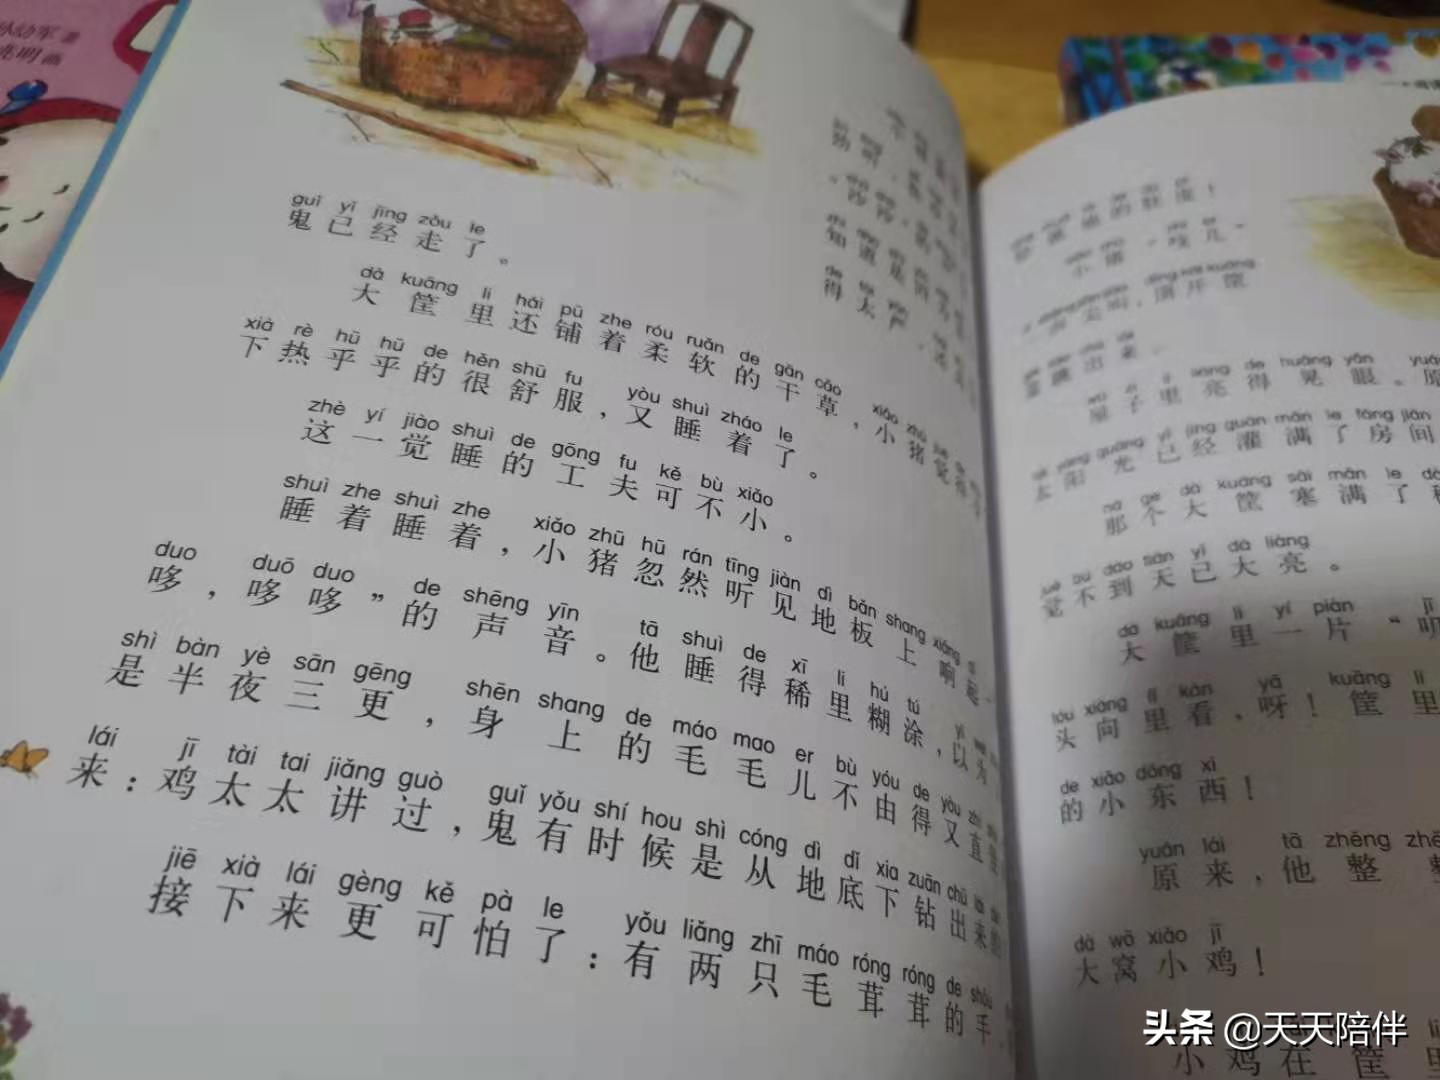 孙幼军 著
guǐ yǐ jīng zǒu le
鬼已经走了。
dà kuāng li hái pū zhe róu ruǎn de gān cǎo xiǎo zhū jué de
大筐里还铺着柔软的干草，小猪觉得
xià rè hū hū de hěn shū fu yòu shuì zháo le
下热乎乎的很舒服，又睡着了。
zhè yí jiào shuì de gōng fu kě bù xiǎo
这一觉睡的工夫可不小。
shuì zhe shuì zhe xiǎo zhū hū rán tīng jiàn dì bǎn shang xiǎng qǐ
睡着睡着，小猪忽然听见地板上响起
duo duō duo de shēng yīn tā shuì de xī li hú tú yǐ wéi
哆，哆哆”的声音。他睡得稀里糊涂，以为
shì bàn yè sān gēng shēn shang de máo mao er bù yóu de yòu zhí
是半夜三更，身上的毛毛儿不由得又直
lái jī tài tai jiǎng guò guǐ yǒu shí hou shì cóng dì dǐ xia zuān chū lái de
来：鸡太太讲过，鬼有时候是从地底下钻出来的
jiē xià lái gèng kě pà le yǒu liǎng zhī máo róng róng de shǒu
接下来更可怕了：有两只毛茸茸的手，
知道是
得太严
小猪“吱儿
出来。
wū zi li liàng de huǎng yǎn yuá
屋子里亮得晃眼。原
tài yáng guāng yǐ jīng guàn mǎn le fáng jiān
太阳光已经灌满了房间
nà ge dà kuāng sāi mǎn le dà
那个大筐塞满了
jué bu dào tiān yǐ dà liàng
觉不到天已大亮。
dà kuāng li yí piàn jī
大筐里一片“叽
tóu xiàng lǐ kàn yā kuāng li
头向里看，呀！筐里
de xiǎo dōng xi
的小东西！
yuán lái tā zhěng zhě
原来，他整整
dà wō xiǎo jī
大窝小鸡！
小鸡在筐里
头条 @天天陪伴